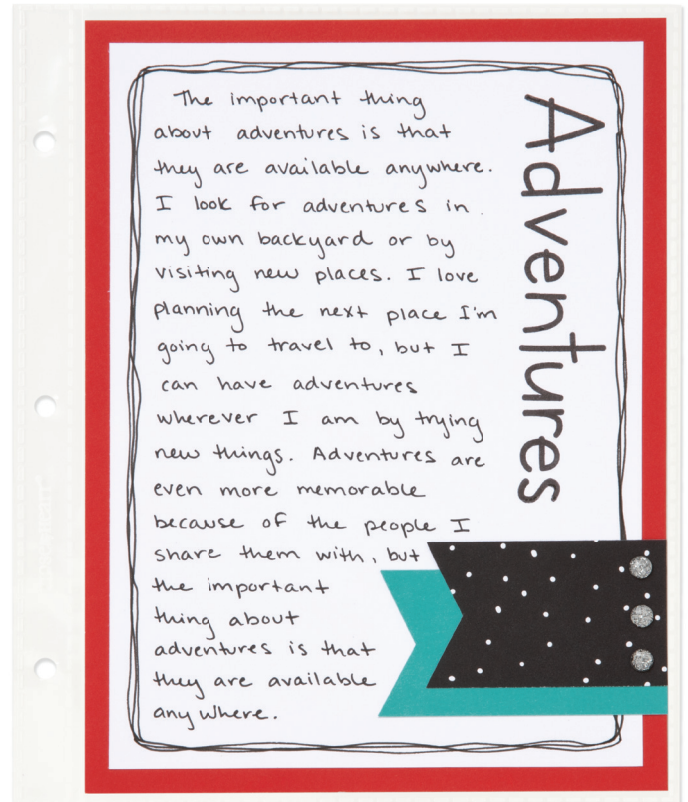 Adventures
The important thing
about adventures is that
they are available anywhere.
I look for adventures in
my own backyard or by
visiting new places. I love
planning the next place I'm
going to travel to, but I
can have adventures
wherever I am by trying
new things. Adventures are
even more memorable
because of the people I
share them with, but
the important
thing about
adventures is that
they are available
anywhere.